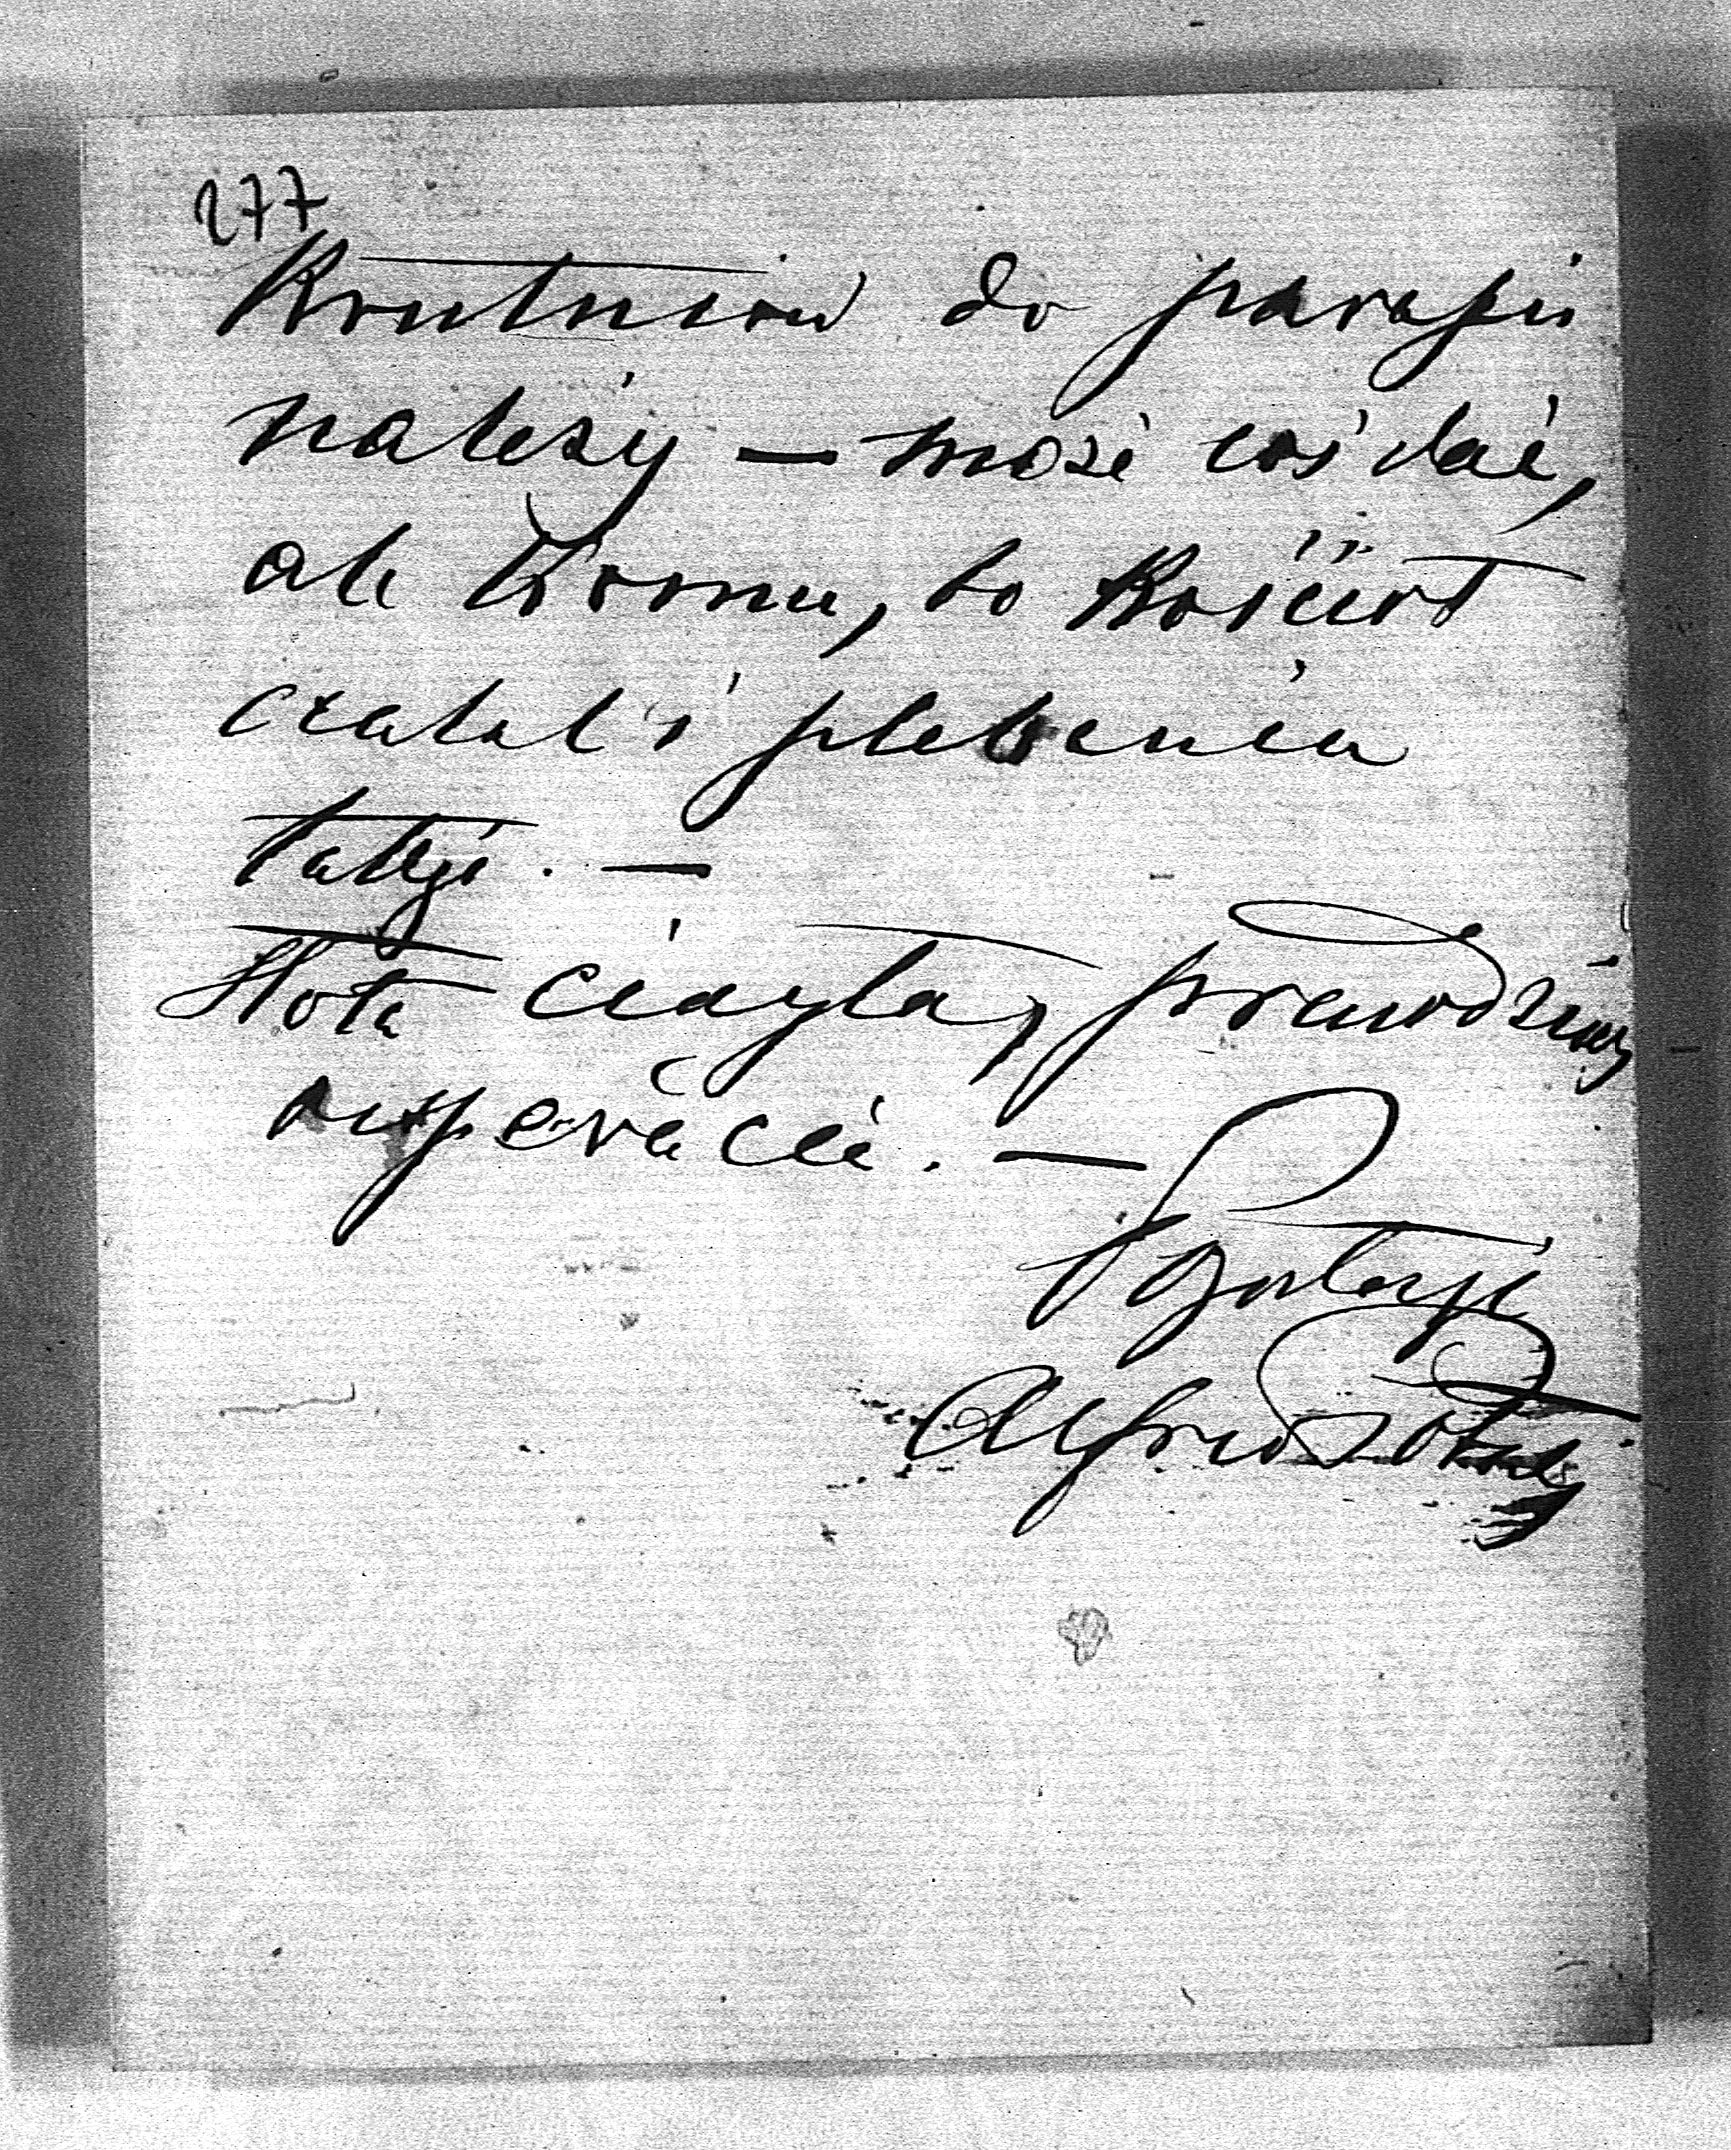 277
Krutniów do parafii
należy – może coś dać,
ale komu, bo Kościół
czabal i plebania
także. –
Słota ciągła, prawdziwy
rozpacz. –
Alfred Potocki